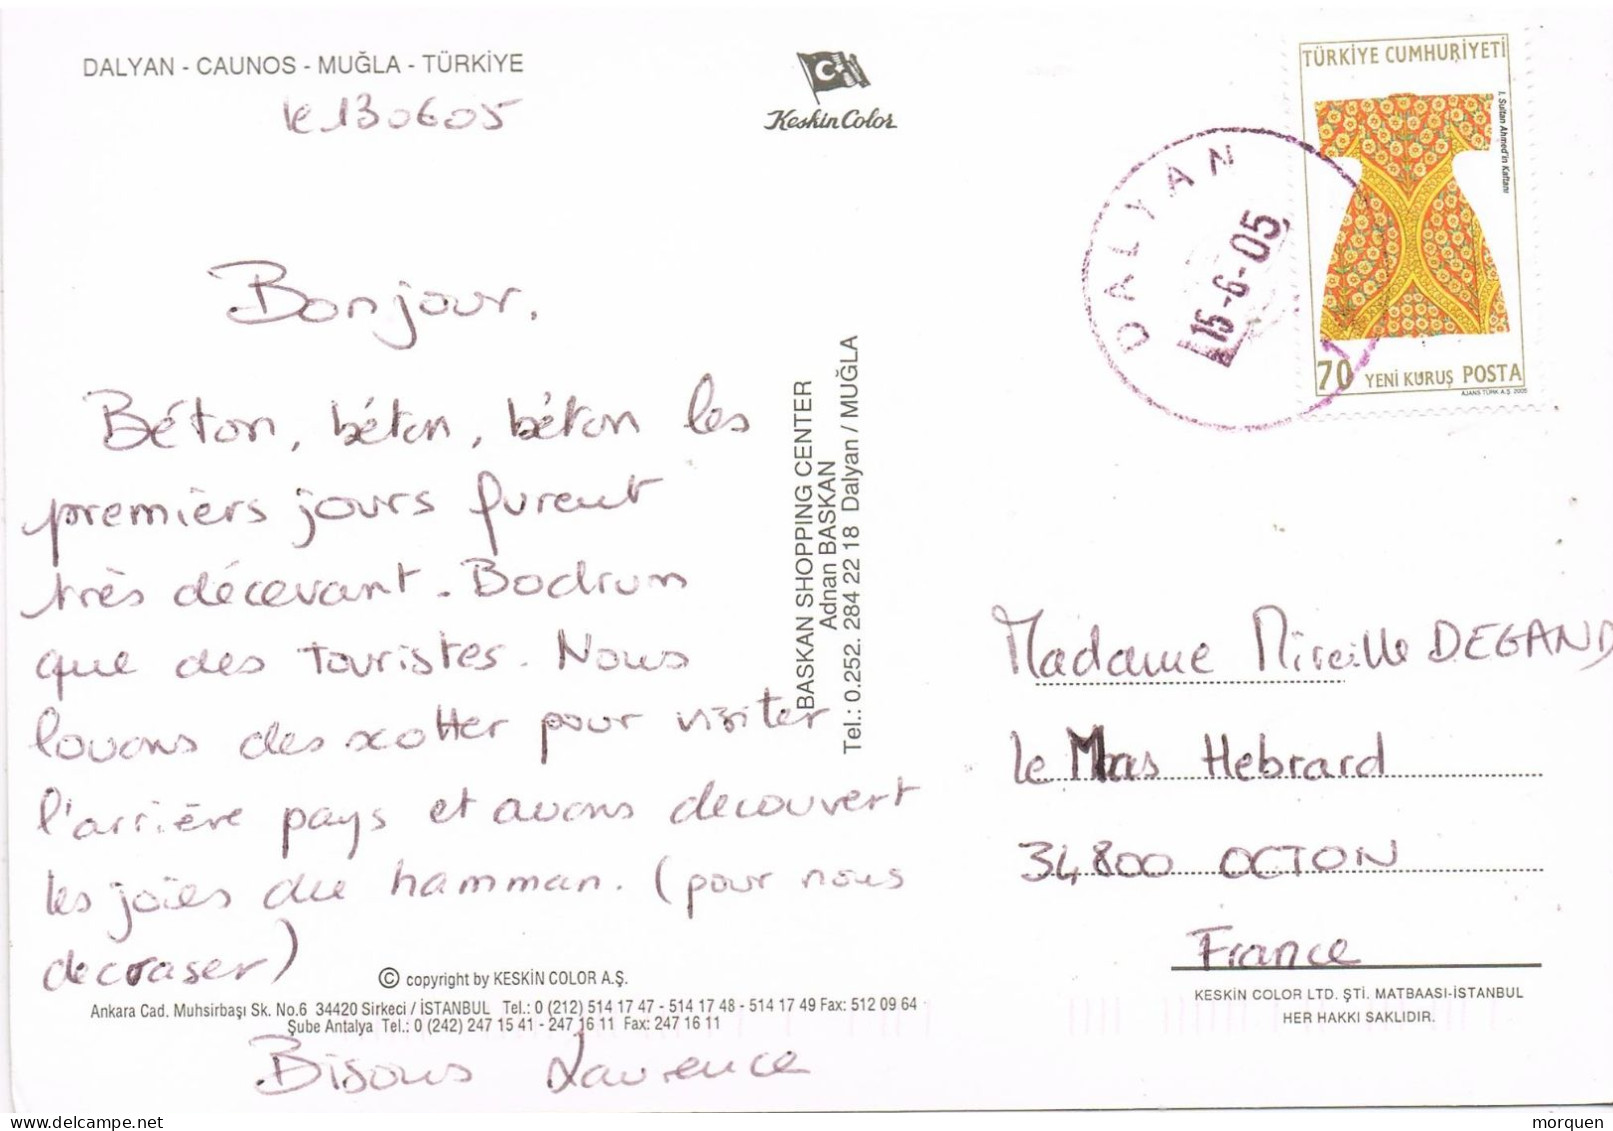 DALYAN - CAUNOS - MUĞLA - TÜRKİYE
le 130605
Keskin Color
Bonjour,
Béton, béton, béton les
premiers jours furent
très décevant. Bodrum
que des touristes. Nous
louons des scotter pour visiter
l'arrière pays et avons decouvert
les joies du hamman. (pour nous
decraser)
Bisous Laurence
© copyright by KESKİN COLOR A.Ş.
Ankara Cad. Muhsirbaşı Sk. No.6 34420 Sirkeci / İSTANBUL Tel.: 0 (212) 514 17 47 - 514 17 48 - 514 17 49 Fax: 512 09 64
Şube Antalya Tel.: 0 (242) 247 15 41 - 247 16 11 Fax: 247 16 11
BASKAN SHOPPING CENTER
Adnan BASKAN
Tel.: 0.252. 284 22 18 Dalyan / MUĞLA
DALYAN
15-6-05
TÜRKİYE CUMHURİYETİ
I. Sultan Ahmed'in Kaftanı
70 YENİ KURUŞ POSTA
AJANS TÜRK A.Ş. 2005
Madame Mireille DEGAND
le Mas Hebrard
34800 OCTON
France
KESKİN COLOR LTD. ŞTİ. MATBAASI-İSTANBUL
HER HAKKI SAKLIDIR.
morquen